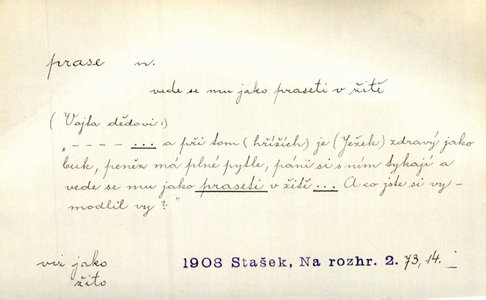 prase n.
vede se mu jako praseti v žitě
(Vojta dědovi:)
"---- ... a při tom (hříších) je (Ježek) zdravý jako
buk, peněz má plné pytle, páni si s ním tykají a
vede se mu jako praseti v žitě ... A co jste si vy-
modlil vy?"
viz jako
žito
1908 Stašek, Na rozhr. 2. 73, 14.